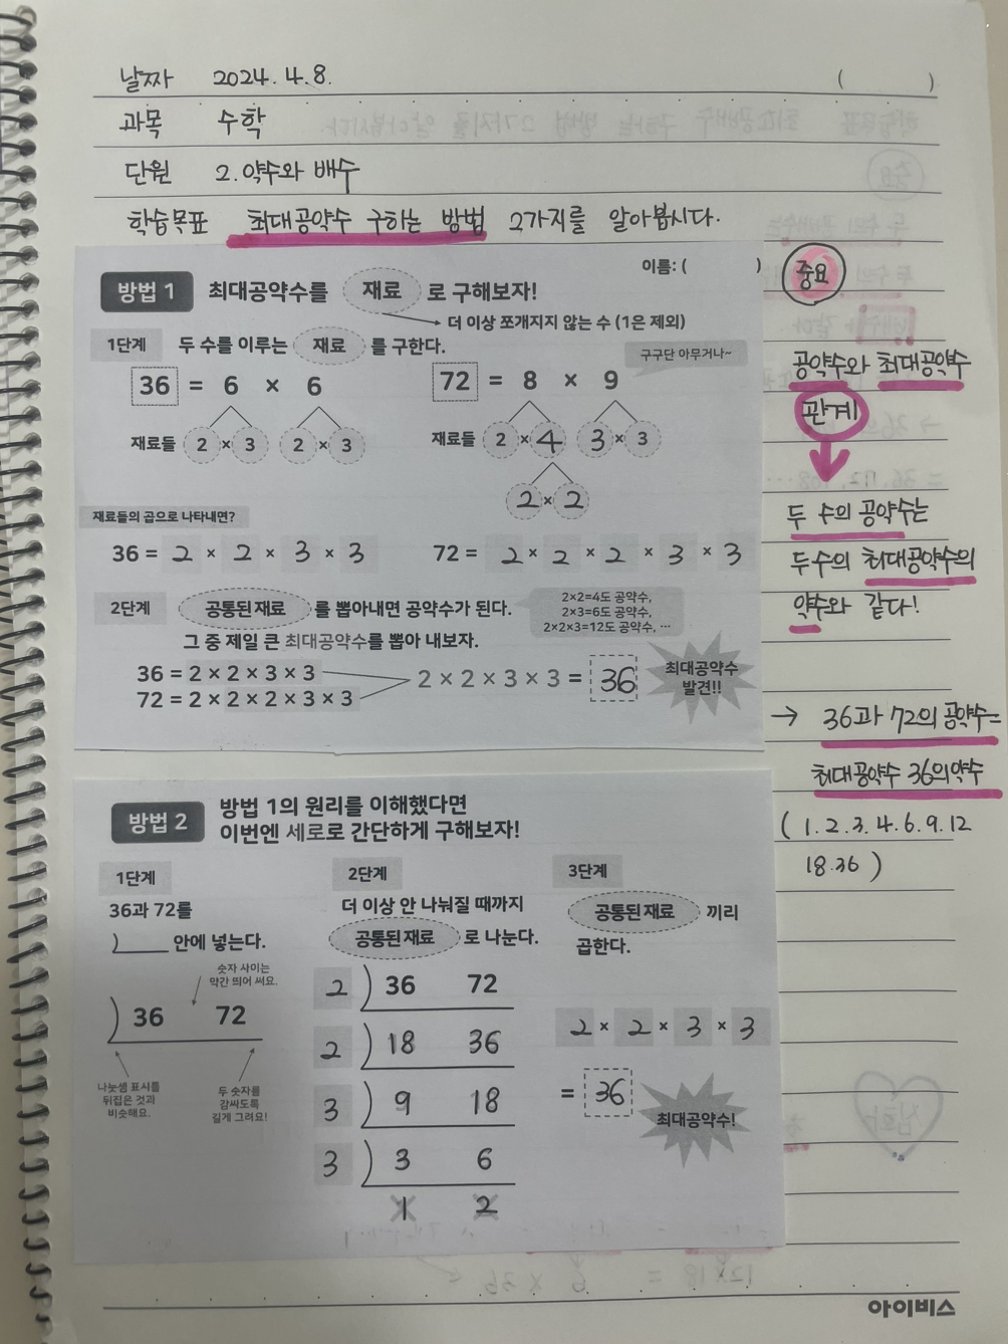 날짜 2024. 4. 8. ( )
과목 수학
단원 2. 약수와 배수
학습목표 최대공약수 구하는 방법 2가지를 알아봅시다.
이름: ( )
방법 1 최대공약수를 재료 로 구해보자!
더 이상 쪼개지지 않는 수 (1은 제외)
1단계 두 수를 이루는 재료 를 구한다.
구구단 아무거나~
36 = 6 × 6 72 = 8 × 9
재료들 2 × 3 2 × 3 재료들 2 × 4 3 × 3
2 × 2
재료들의 곱으로 나타내면?
36 = 2 × 2 × 3 × 3 72 = 2 × 2 × 2 × 3 × 3
2단계 공통된 재료 를 뽑아내면 공약수가 된다.
2×2=4도 공약수,
2×3=6도 공약수,
2×2×3=12도 공약수, …
그 중 제일 큰 최대공약수를 뽑아 내보자.
36 = 2 × 2 × 3 × 3
72 = 2 × 2 × 2 × 3 × 3
2 × 2 × 3 × 3 = 36
최대공약수
발견!!
중요
공약수와 최대공약수
관계
두 수의 공약수는
두수의 최대공약수의
약수와 같다!
→ 36과 72의 공약수=
최대공약수 36의약수
( 1. 2. 3. 4. 6. 9. 12
18. 36 )
방법 2 방법 1의 원리를 이해했다면
이번엔 세로로 간단하게 구해보자!
1단계
36과 72를
) 안에 넣는다.
숫자 사이는
약간 띄어 써요.
) 36 72
나눗셈 표시를
뒤집은 것과
비슷해요.
두 숫자를
감싸도록
길게 그려요!
2단계
더 이상 안 나눠질 때까지
공통된 재료 로 나눈다.
2 ) 36 72
2 ) 18 36
3 ) 9 18
3 ) 3 6
1 2
3단계
공통된 재료 끼리
곱한다.
2 × 2 × 3 × 3
= 36
최대공약수!
아이비스